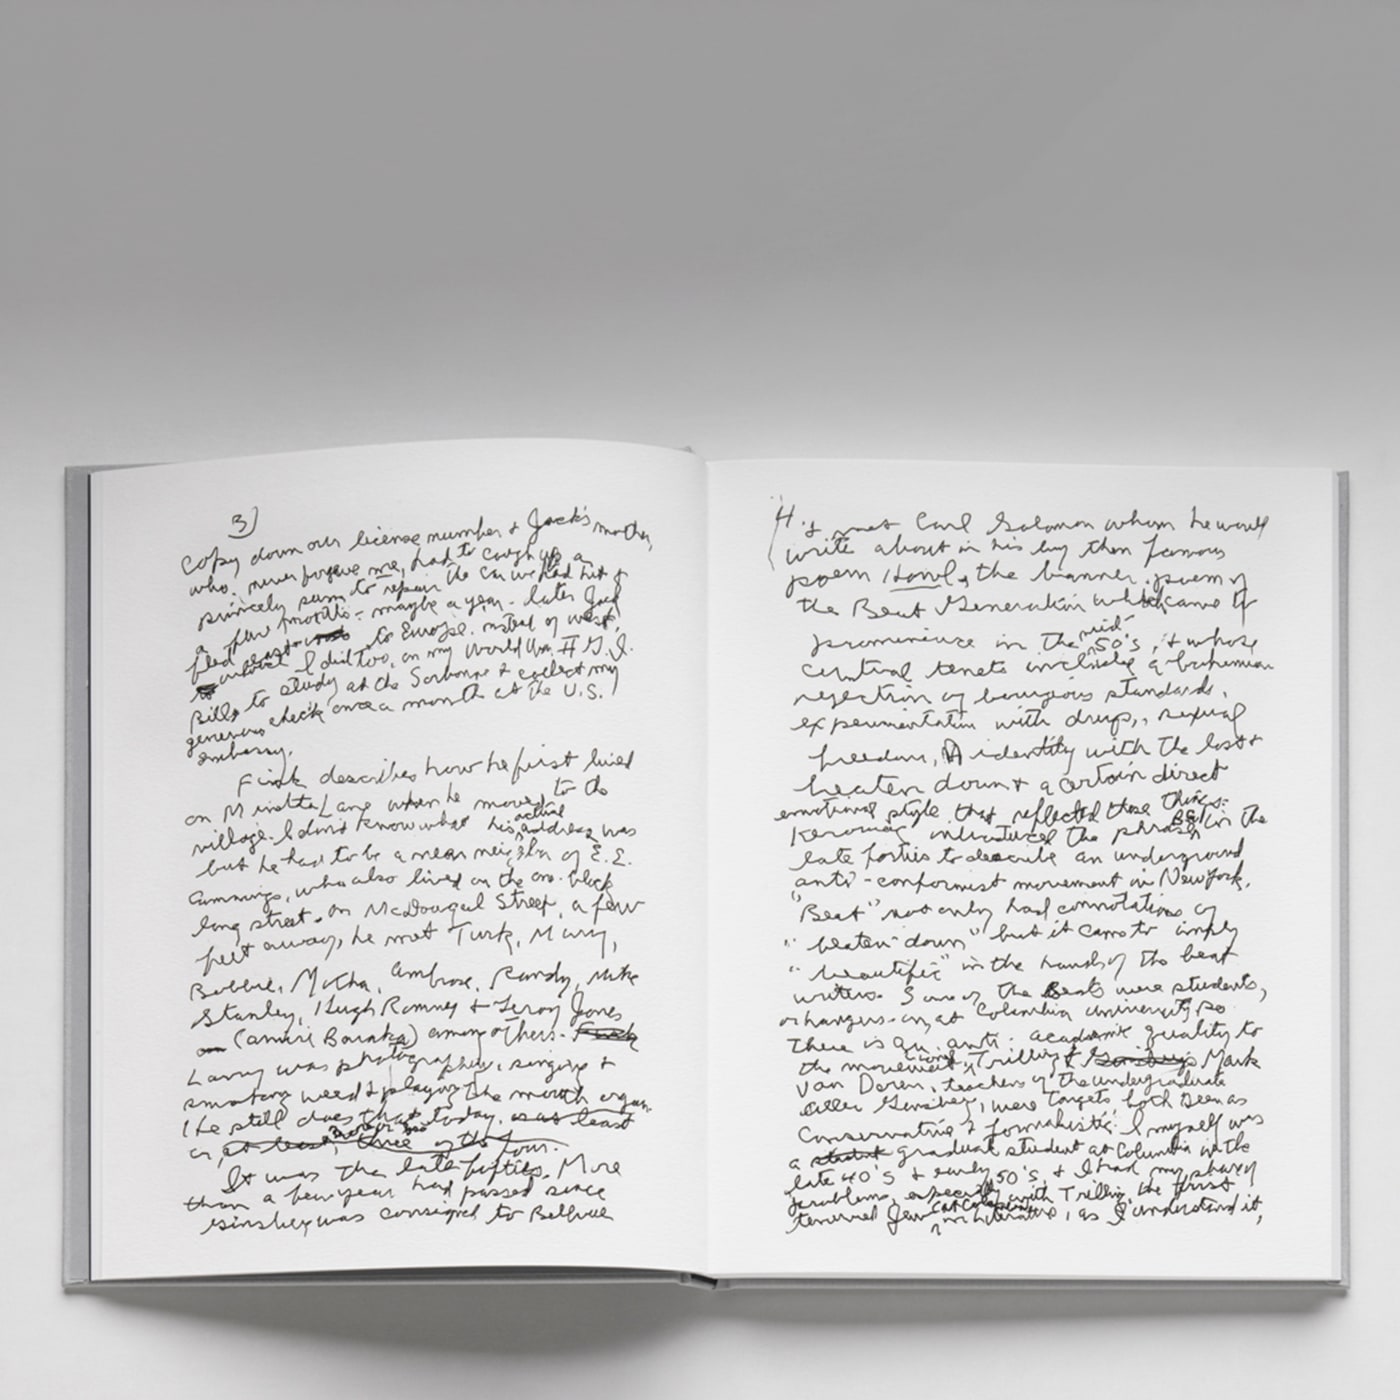 3)
copy down our license number & Jack's mother,
who never forgave me, had to cough up a
princely sum to repair the car we had hit &
a few months - maybe a year - later Jack
fled to Europe. instead of west,
I did too, on my World War II G.I.
Bill, to study at the Sorbonne & collect my
generous check once a month at the U.S.
embassy.
Fink describes how he first lived
on Minetta Lane when he moved to the
village. I don't know what his actual address was
but he had to be a near neighbor of E.E.
Cummings, who also lived on the one block
long street. On McDougal Street, a few
feet away, he met Turk, Mary,
Bobbie, Motha, Ambrose, Randy, Mike
Stanley, Hugh Romney & Leroy Jones
(Amiri Baraka) among others.
Larry was photographing, singing &
smoking weed & playing the mouth organ.
(he still does that today, or at least
or, at least, three of the four.
It was the late fifties. More
than a few years had passed since
Ginsberg was consigned to Bellvue
4.
& met Carl Solomon whom he would
write about in his by then famous
poem Howl, the banner poem of
the Beat Generation which came to
prominence in the mid 50's, & whose
central tenets include a bohemian
rejection of bourgeois standards,
experimentation with drugs, sexual
freedom, identity with the lost &
beaten down & a certain direct
emotional style that reflected these things.
Kerouac introduced the phrase BG in the
late forties to describe an underground
anti-conformist movement in New York.
"Beat" not only had connotations of
"beaten down" but it came to imply
"beautific" in the hands of the beat
writers. Some of the Beats were students,
or hangers-on, at Columbia university so
there is an anti-academic quality to
the movement. Lionel Trilling & Mark
Van Doren, teachers of the undergraduate
Allen Ginsberg, were targets both seen as
conservative & formalistic. I myself was
a graduate student at Columbia in the
late 40's & early 50's, & I had my share of
problems, especially with Trilling, the first
tenured Jew at Columbia in literature, as I understand it,